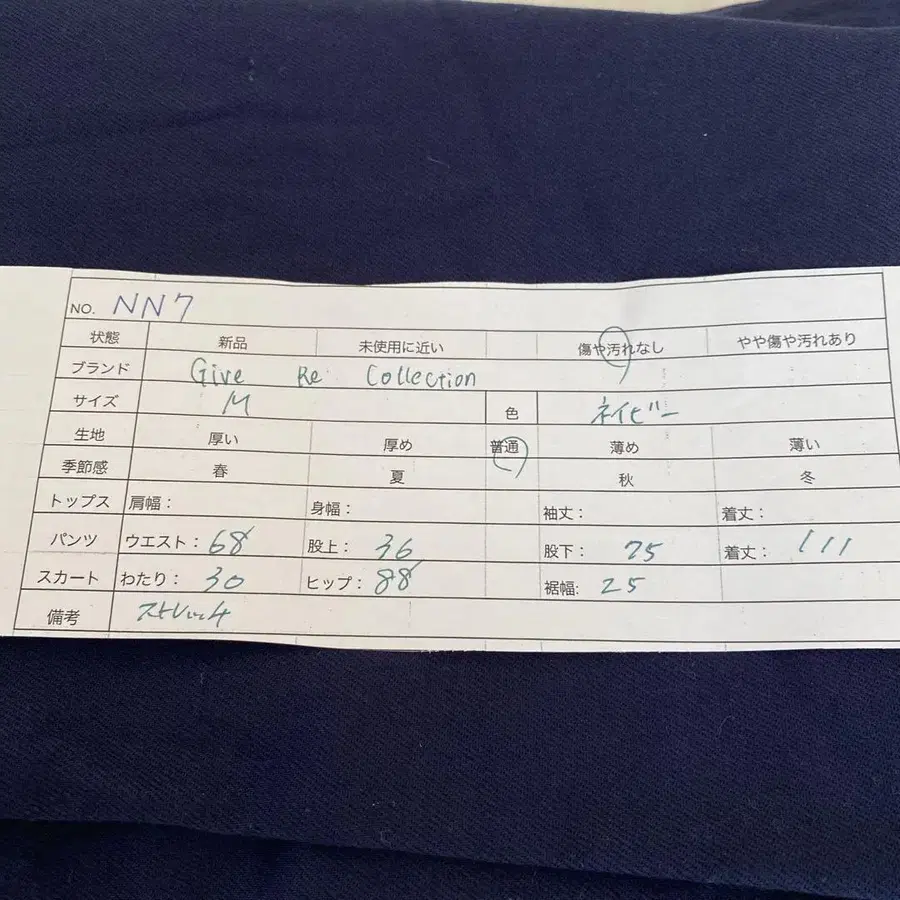 NO. NN7
状態 新品 未使用に近い 傷や汚れなし やや傷や汚れあり
ブランド Give Re Collection
サイズ M 色 ネイビー
生地 厚い 厚め 普通 薄め 薄い
季節感 春 夏 秋 冬
トップス 肩幅： 身幅： 袖丈： 着丈：
パンツ ウエスト：68 股上：36 股下： 75 着丈：111
スカート わたり：30 ヒップ：88 裾幅: 25
備考 ストレッチ